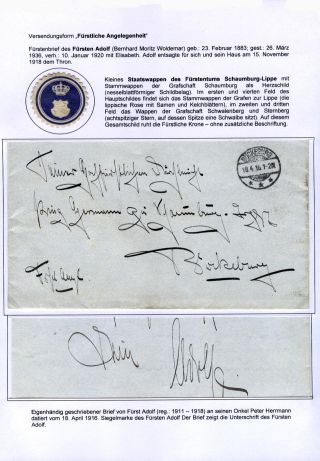 Versendungsform „Fürstliche Angelegenheit"
Fürstenbrief des Fürsten Adolf (Bernhard Moritz Woldemar) geb.: 23. Februar 1883; gest.: 26. März
1936, verh.: 10. Januar 1920 mit Elisabeth. Adolf entsagte für sich und sein Haus am 15. November
1918 dem Thron.
Kleines Staatswappen des Fürstentums Schaumburg-Lippe mit
Stammwappen der Grafschaft Schaumburg als Herzschild
(nesselblattförmiger Schildbelag). Im ersten und vierten Feld des
Hauptschildes findet sich das Stammwappen der Grafen zur Lippe (die
lippische Rose mit Samen und Kelchblättern), im zweiten und dritten
Feld das Wappen der Grafschaft Schwalenberg und Sternberg
(achtspitziger Stern, auf dessen Spitze eine Schwalbe sitzt). Auf diesem
Gesamtschild ruht die Fürstliche Krone – ohne zusätzliche Beschriftung.
18.4.16.
Prinz Hermann zu Schaumburg-Lippe
Bückeburg
Adolf
Eigenhändig geschriebener Brief von Fürst Adolf (reg.: 1911 – 1918) an seinen Onkel Peter Herrmann
datiert vom 18. April 1916. Siegelmarke des Fürsten Adolf Der Brief zeigt die Unterschrift des Fürsten
Adolf.